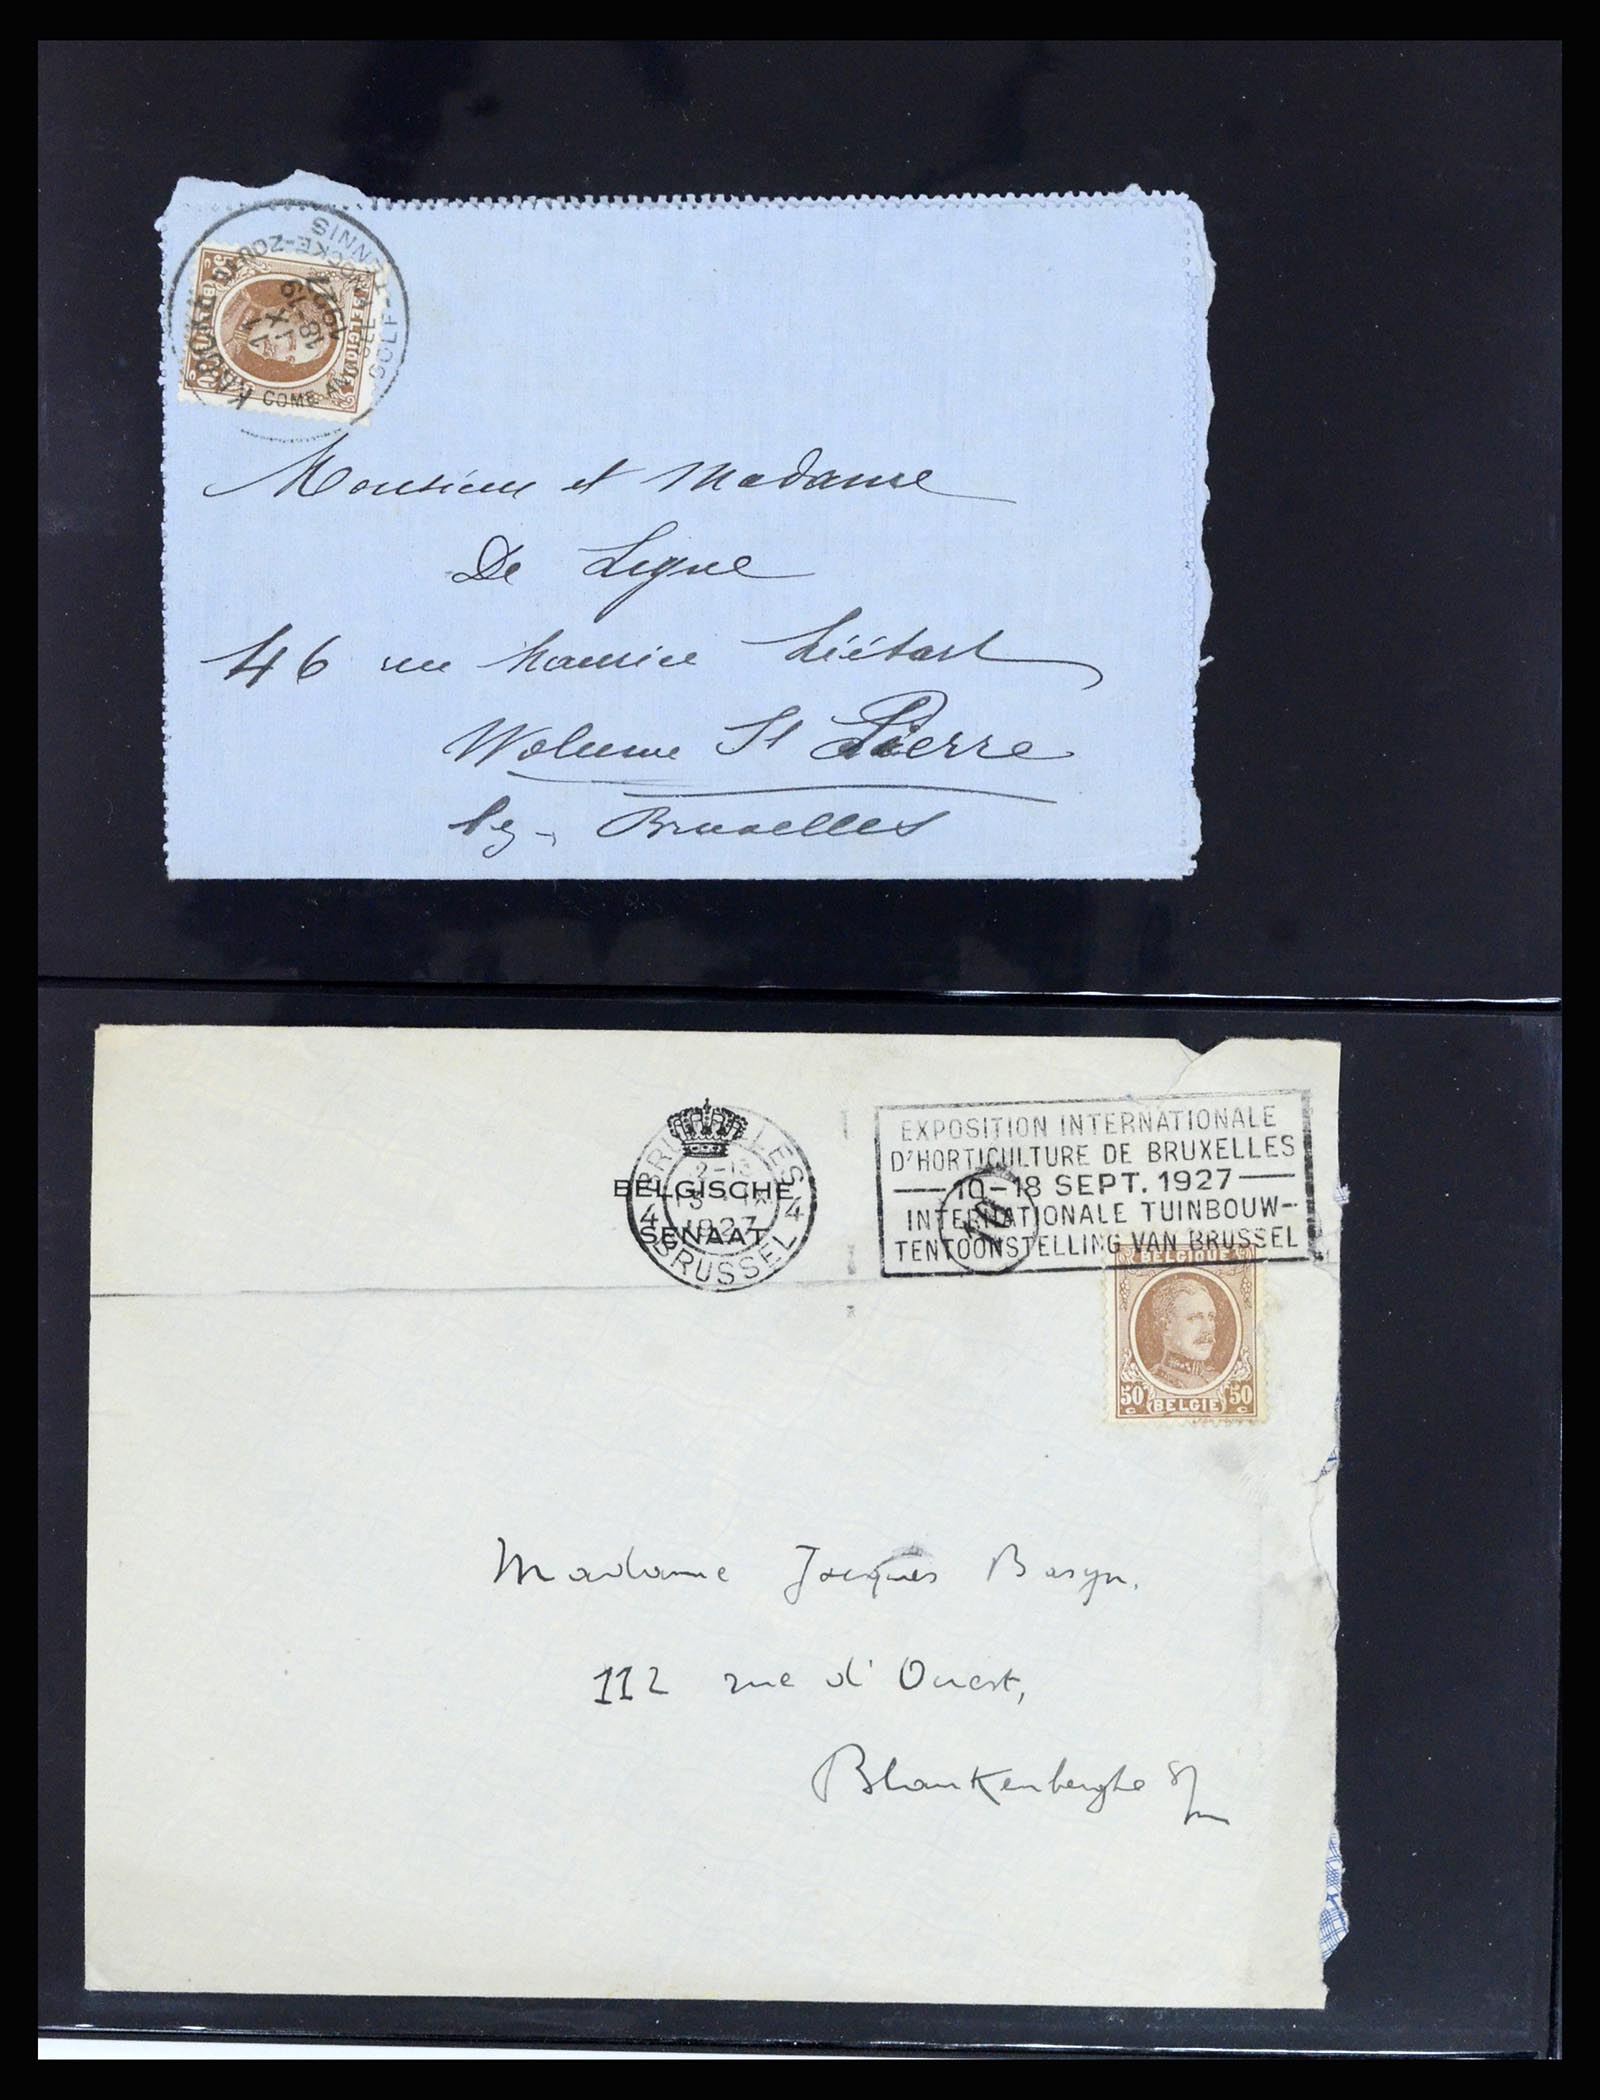 GOLF-TENNIS
1927
BELGIQUE
Monsieur et Madame
De Ligne
46 rue Maurice Liétart
Woluwe St Pierre
lez-Bruxelles
BELGISCHE
SENAAT
4 4
1927
BRUSSEL
EXPOSITION INTERNATIONALE
D'HORTICULTURE DE BRUXELLES
10-18 SEPT. 1927
INTERNATIONALE TUINBOUW-
TENTOONSTELLING VAN BRUSSEL
BELGIQUE
50 50
c c
BELGIE
Madame Jacques Basyn,
112 rue d'Ouest,
Blankenberghe s/m